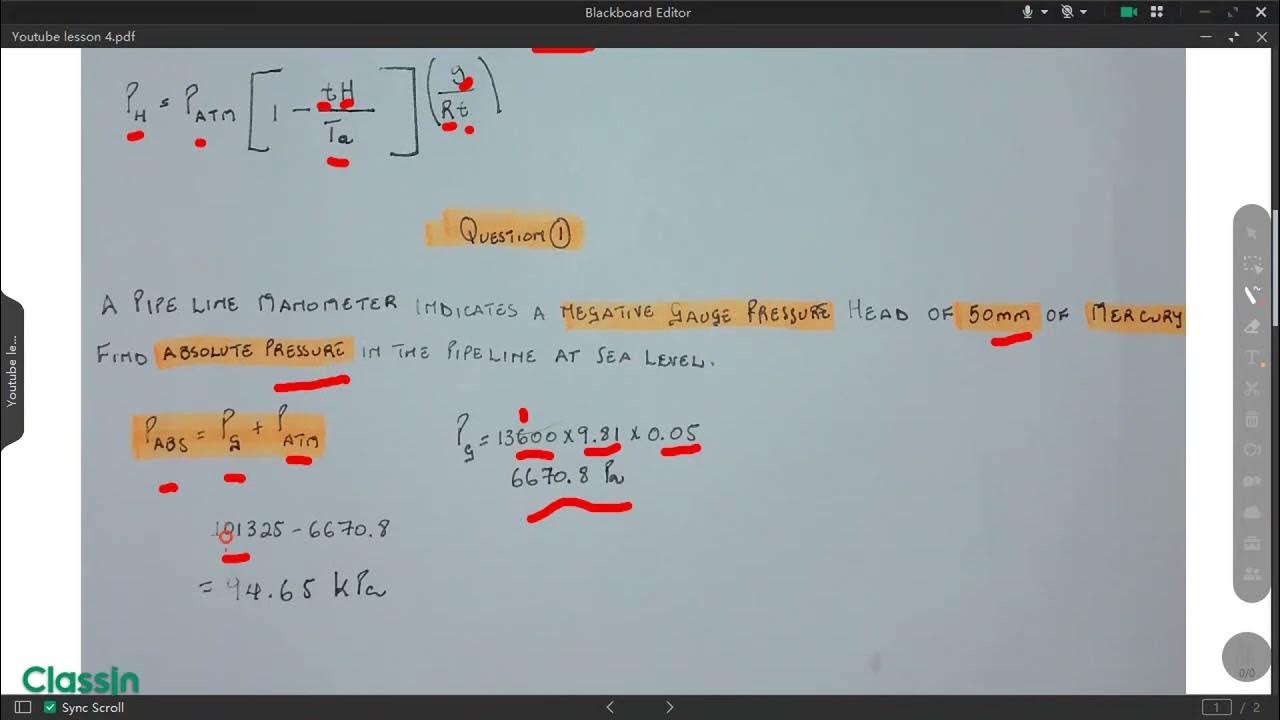 Blackboard Editor
Youtube lesson 4.pdf
P_H = P_ATM [1 - tH/Ta]^(g/Rt)
QUESTION ①
A PIPE LINE MANOMETER INDICATES A NEGATIVE GAUGE PRESSURE HEAD OF 50mm OF MERCURY
FIND ABSOLUTE PRESSURE IN THE PIPELINE AT SEA LEVEL.
P_ABS = P_g + P_ATM
P_g = 13600 x 9.81 x 0.05
6670.8 Pa
101325 - 6670.8
= 94.65 kPa
Youtube le...
0/0
ClassIn
Sync Scroll
1 / 2